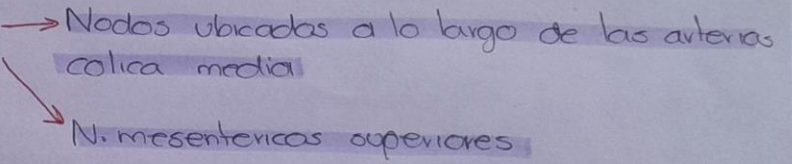 → Nodos ubicadas a lo largo de las arterias
colica media
N. mesentericos superiores